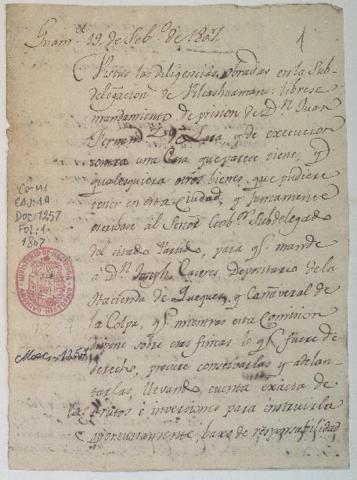 Guam.ª 19. de Feb.º de 1807.
1
Vistas las diligencias obradas en la Sub-
delegacion de Vilcashuaman: librese
mandamiento de prision de D.n Juan
Fernand.z y Lara, y de execucion
contra una Casa que parece tiene, y
qualesquiera otros bienes, que pudiere
tener en esta Ciudad, y juntamente
escribase al Señor Subdelegado
del citado Partido, para q.e mande
a D.n Josepha Caseres Depositario de la
Hacienda de y Cañaveral de
la Colpa, q.e mientras esta Comision
sobre estas fincas lo q.e fuere de
derecho, procure conservarlas y adelan-
tarlas, llevando cuenta exacta de
los frutos e inversiones para instruirla
oportunamente, baxo de responsabilidad
CO-M1
CAJ: 1A
DOC: 1257
FOL: 1
1807